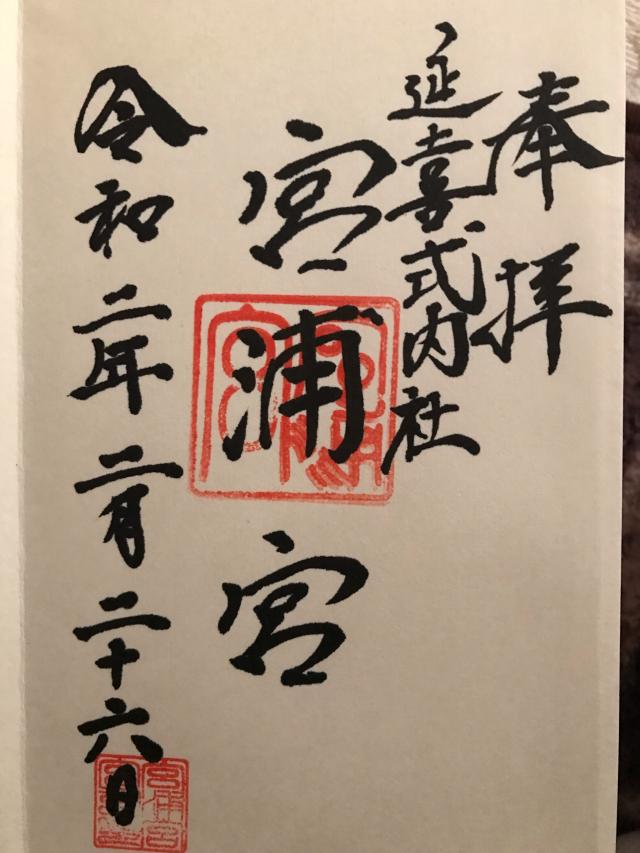 奉拝
延喜式内社
宮浦宮
令和二年二月二十六日